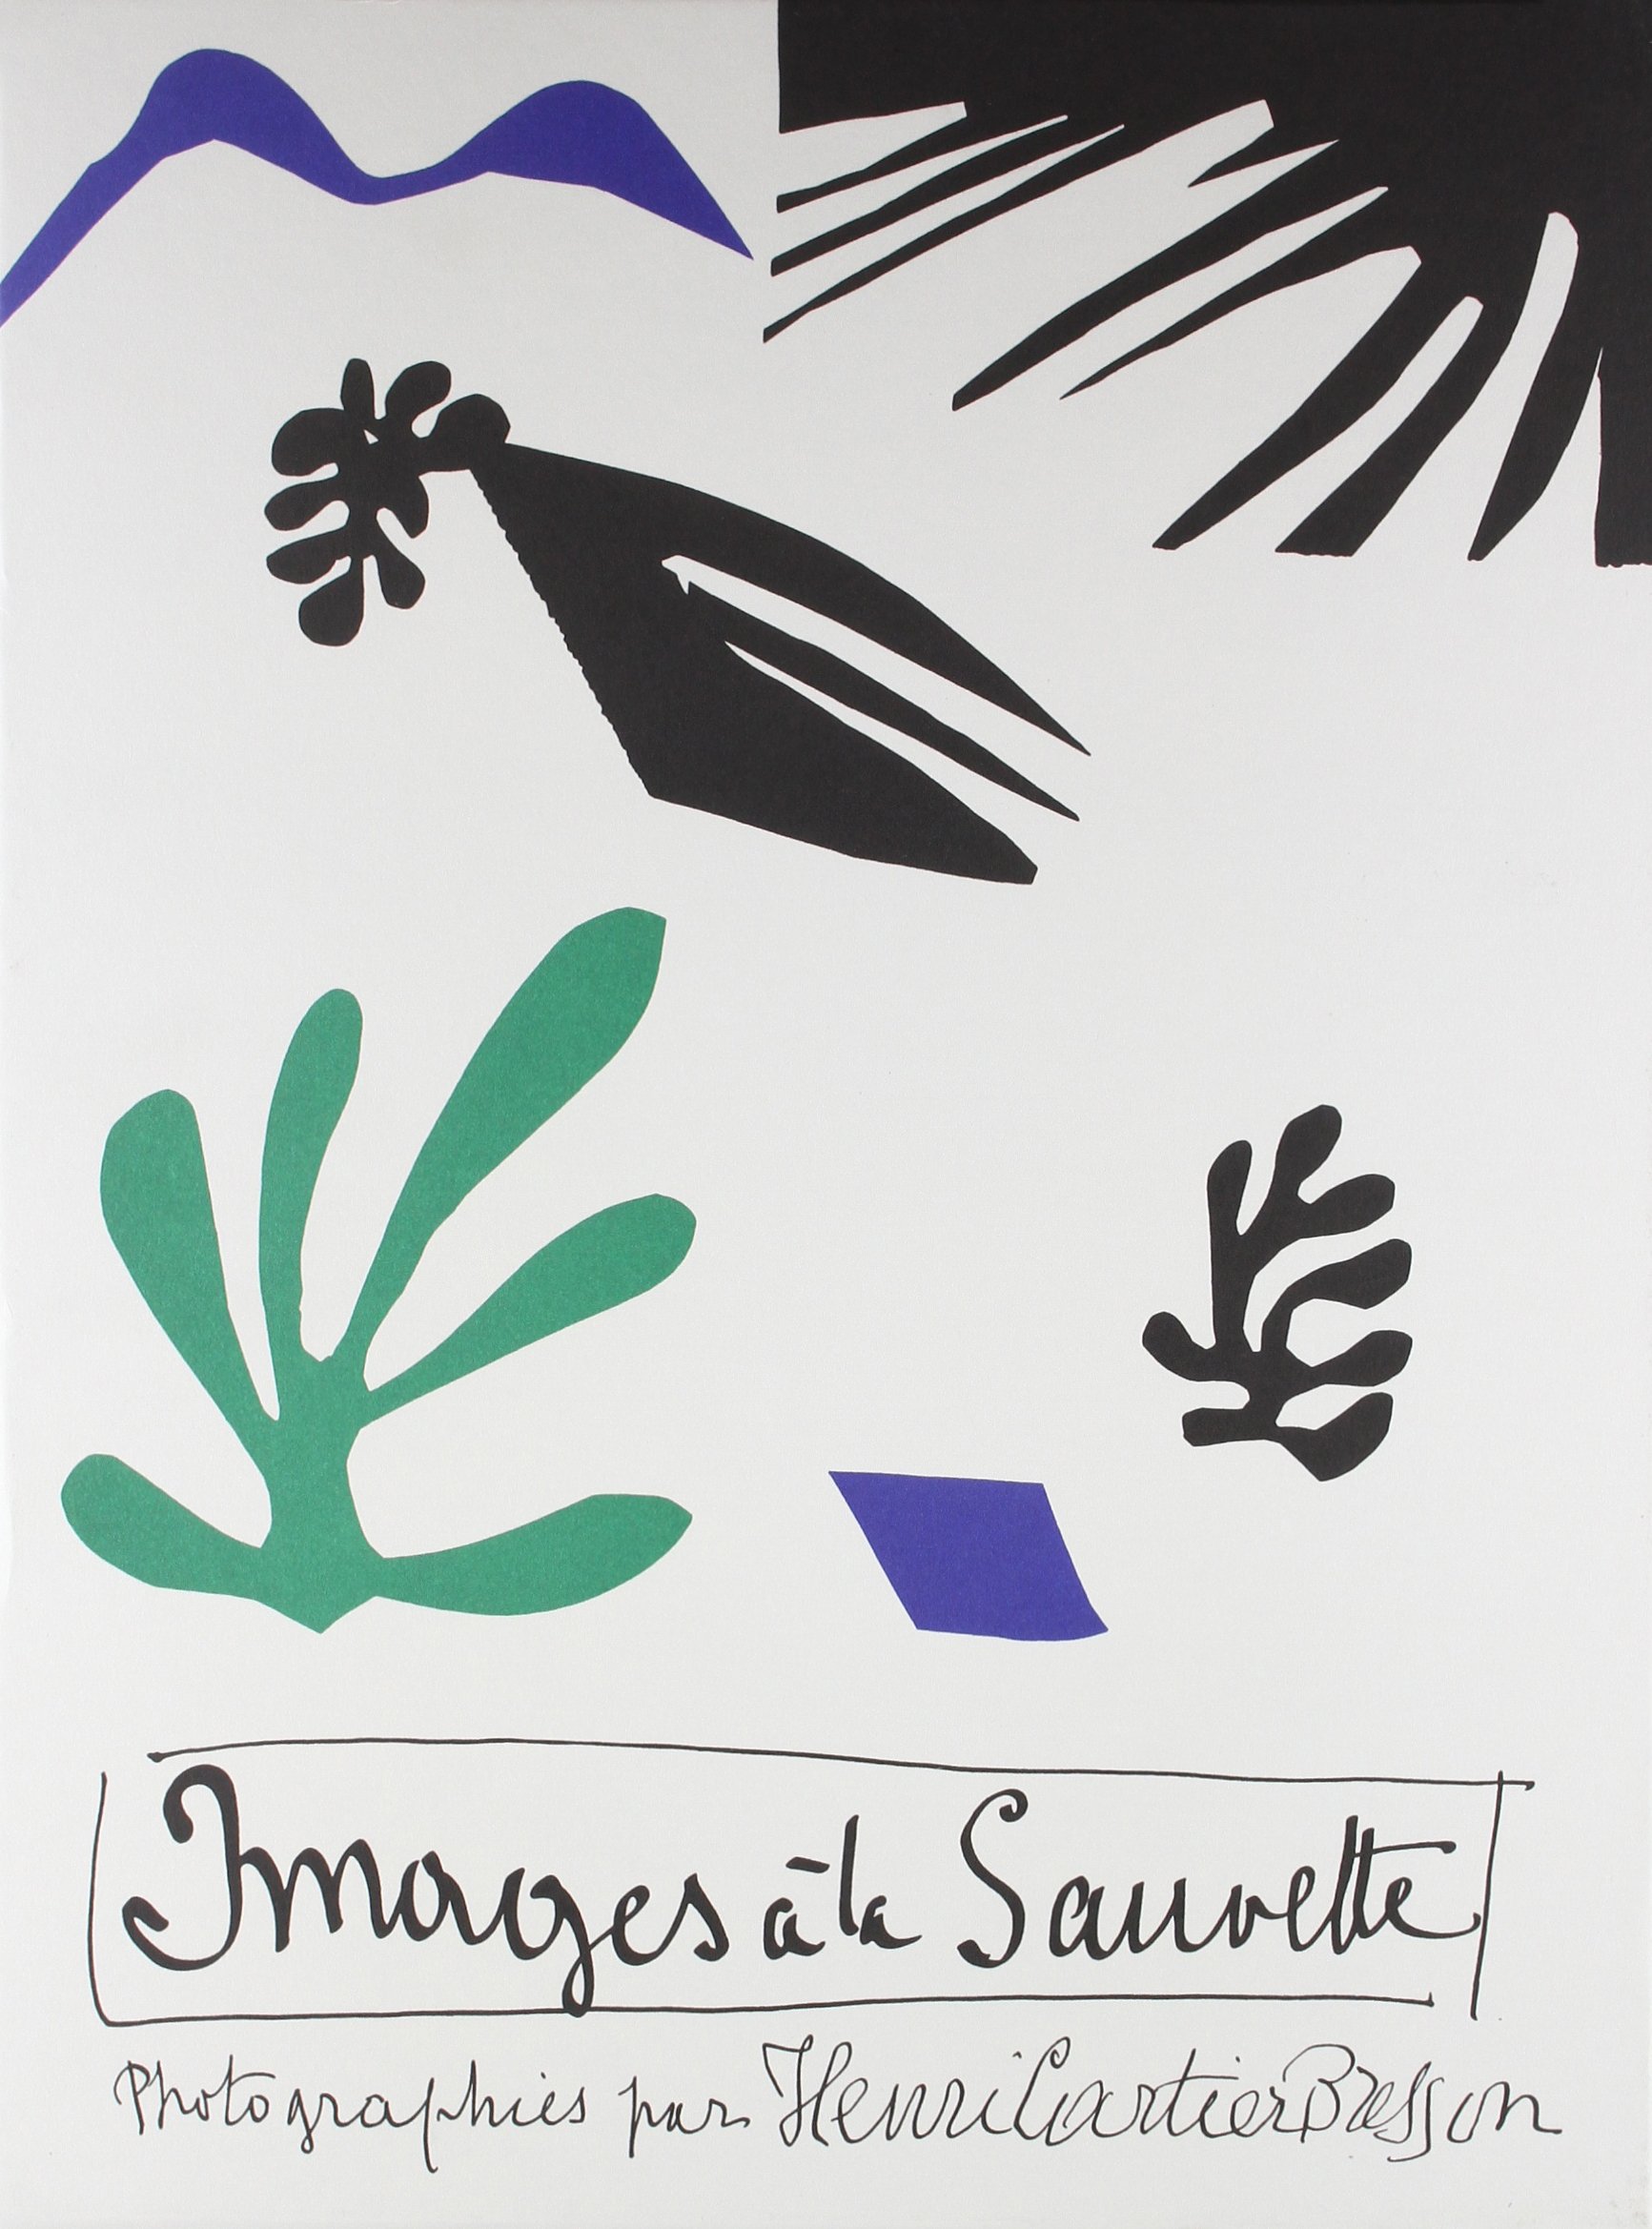 Images à la Sauvette
Photographies par Henri Cartier Bresson